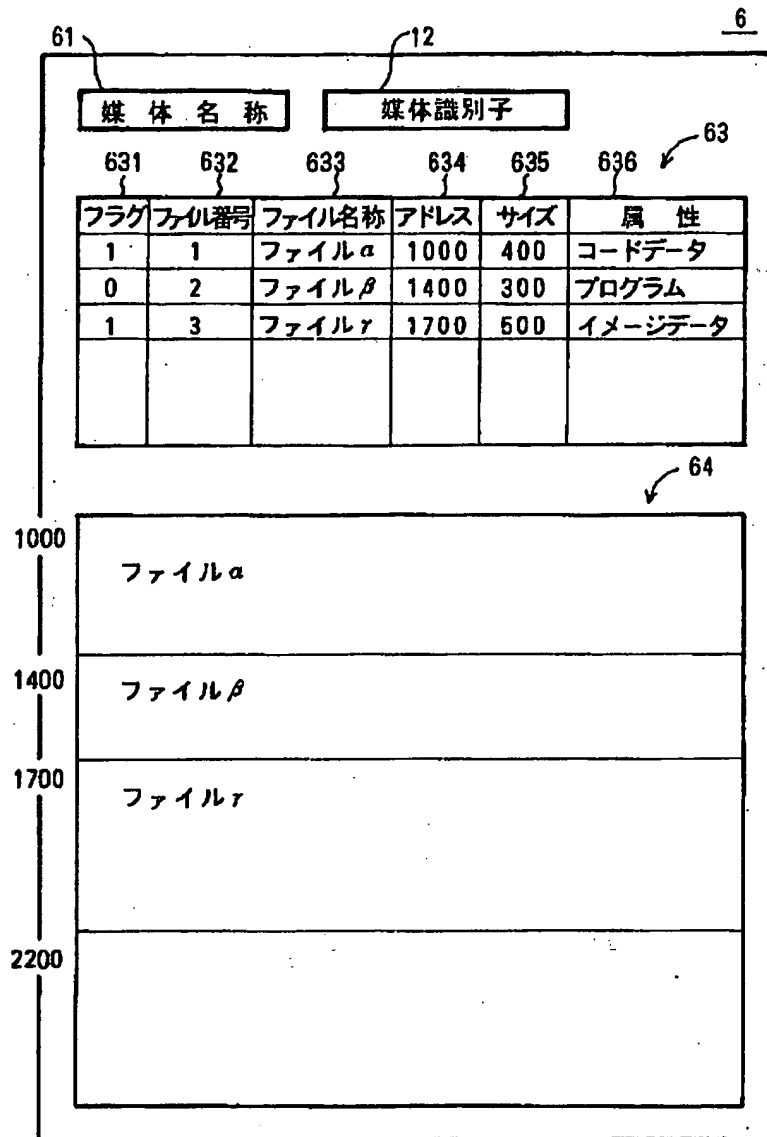 6
61 12
媒体名称 媒体識別子
63
631 632 633 634 635 636
フラグ ファイル番号 ファイル名称 アドレス サイズ 属性
1 1 ファイルα 1000 400 コードデータ
0 2 ファイルβ 1400 300 プログラム
1 3 ファイルγ 1700 500 イメージデータ
64
1000
ファイルα
1400
ファイルβ
1700
ファイルγ
2200